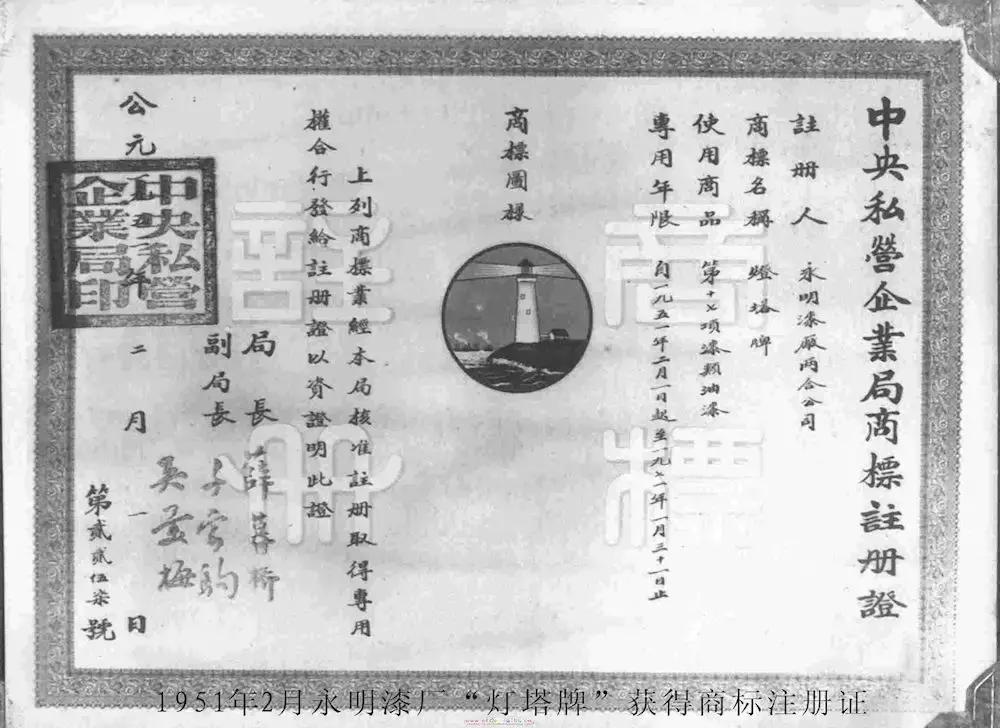 中央私營企業局商標註册證
註册人 永明漆厰兩合公司
商標名稱 燈塔牌
使用商品 第十七項漆類油漆
專用年限 自一九五一年二月一日起至一九七一年一月三十一日止
商標圖樣
上列商標業經本局核准註册取得專用
權合行發給註册證以資證明此證
局長 薛暮橋
副局長
吳羹梅
公元 年二月一日
中央私營企業局印
第貳貳伍柒號
商標註冊
1951年2月永明漆厂“灯塔牌”获得商标注册证